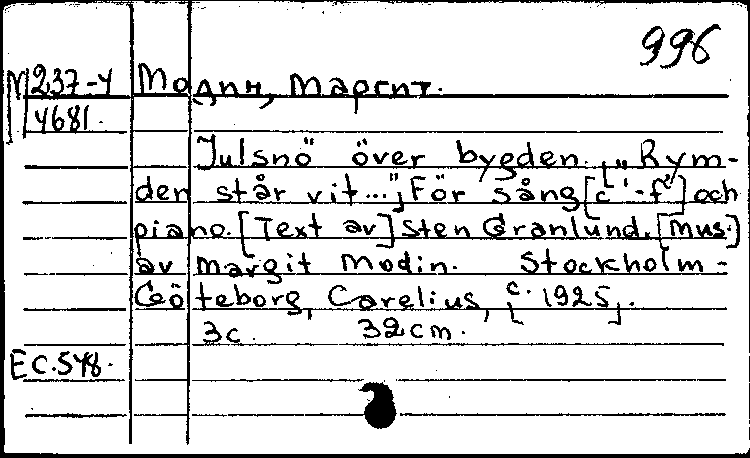 996
М237-4 Модин, Маргит.
4681.
Julsnö över bygden. [„Rym-
den står vit..."] För sång [c'-f²] och
piano. [Text av] Sten Granlund. [Mus.]
av Margit Modin. Stockholm-
Göteborg, Carelius, [c. 1925].
3c. 32cm.
EC.548.